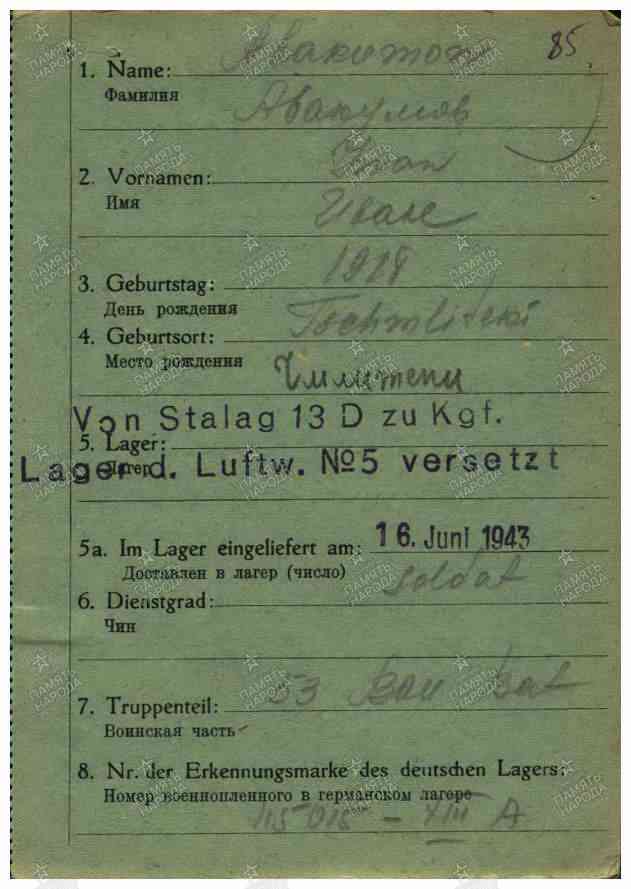 85
1. Name:
Фамилия
Авакумов
2. Vornamen: Iwan
Имя
Иван
3. Geburtstag: 1918
День рождения
4. Geburtsort:
Место рождения
Von Stalag 13 D zu Kgf.
5. Lager:
Лагерь
Lager d. Luftw. №5 versetzt
5a. Im Lager eingeliefert am: 16. Juni 1943
Доставлен в лагерь (число)
6. Dienstgrad: Soldat
Чин
7. Truppenteil: 53 Bau bat
Воинская часть
8. Nr. der Erkennungsmarke des deutschen Lagers:
Номер военнопленного в германском лагере
– XIII A
ПАМЯТЬ НАРОДА